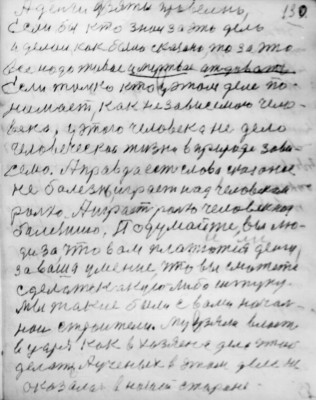 А деньги взяты
130.
Если бы кто знал за это дело
и деньги как было сказано, то за это
все надо живое и мертвое отдавать
Если только кто в этом деле по-
нимает, как независимого чело-
века, у этого человека не дело
человеческая жизня в природе зави-
село. А правда есть слова сказаное
не болезнь играет над человеком
ролю. А играет ролю человек над
болезнию. Подумайте, вы лю-
ди за что вам платют деньги,
за ваше умение, что вы сможете
сделать какую либо штуку.
Мы такие были с вами начал-
наи строители. Мы взяли власть
в царя как в хозяина дело это
делать. А ученых в этом деле не
оказалось в нашей стороне.